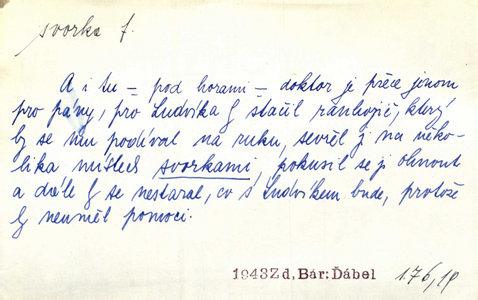 svorka f.
A i tu – pod horami – doktor je přece jenom
pro pány, pro Ludvíka by stačil ranhojič, který
by se mu podíval na ruku, sevřel ji na něko-
lika místech svorkami, pokusil se ji ohnout
a dále by se nestaral, co s Ludvíkem bude, protože
by neuměl pomoci.
1943Zd, Bár: Ďábel 176,19